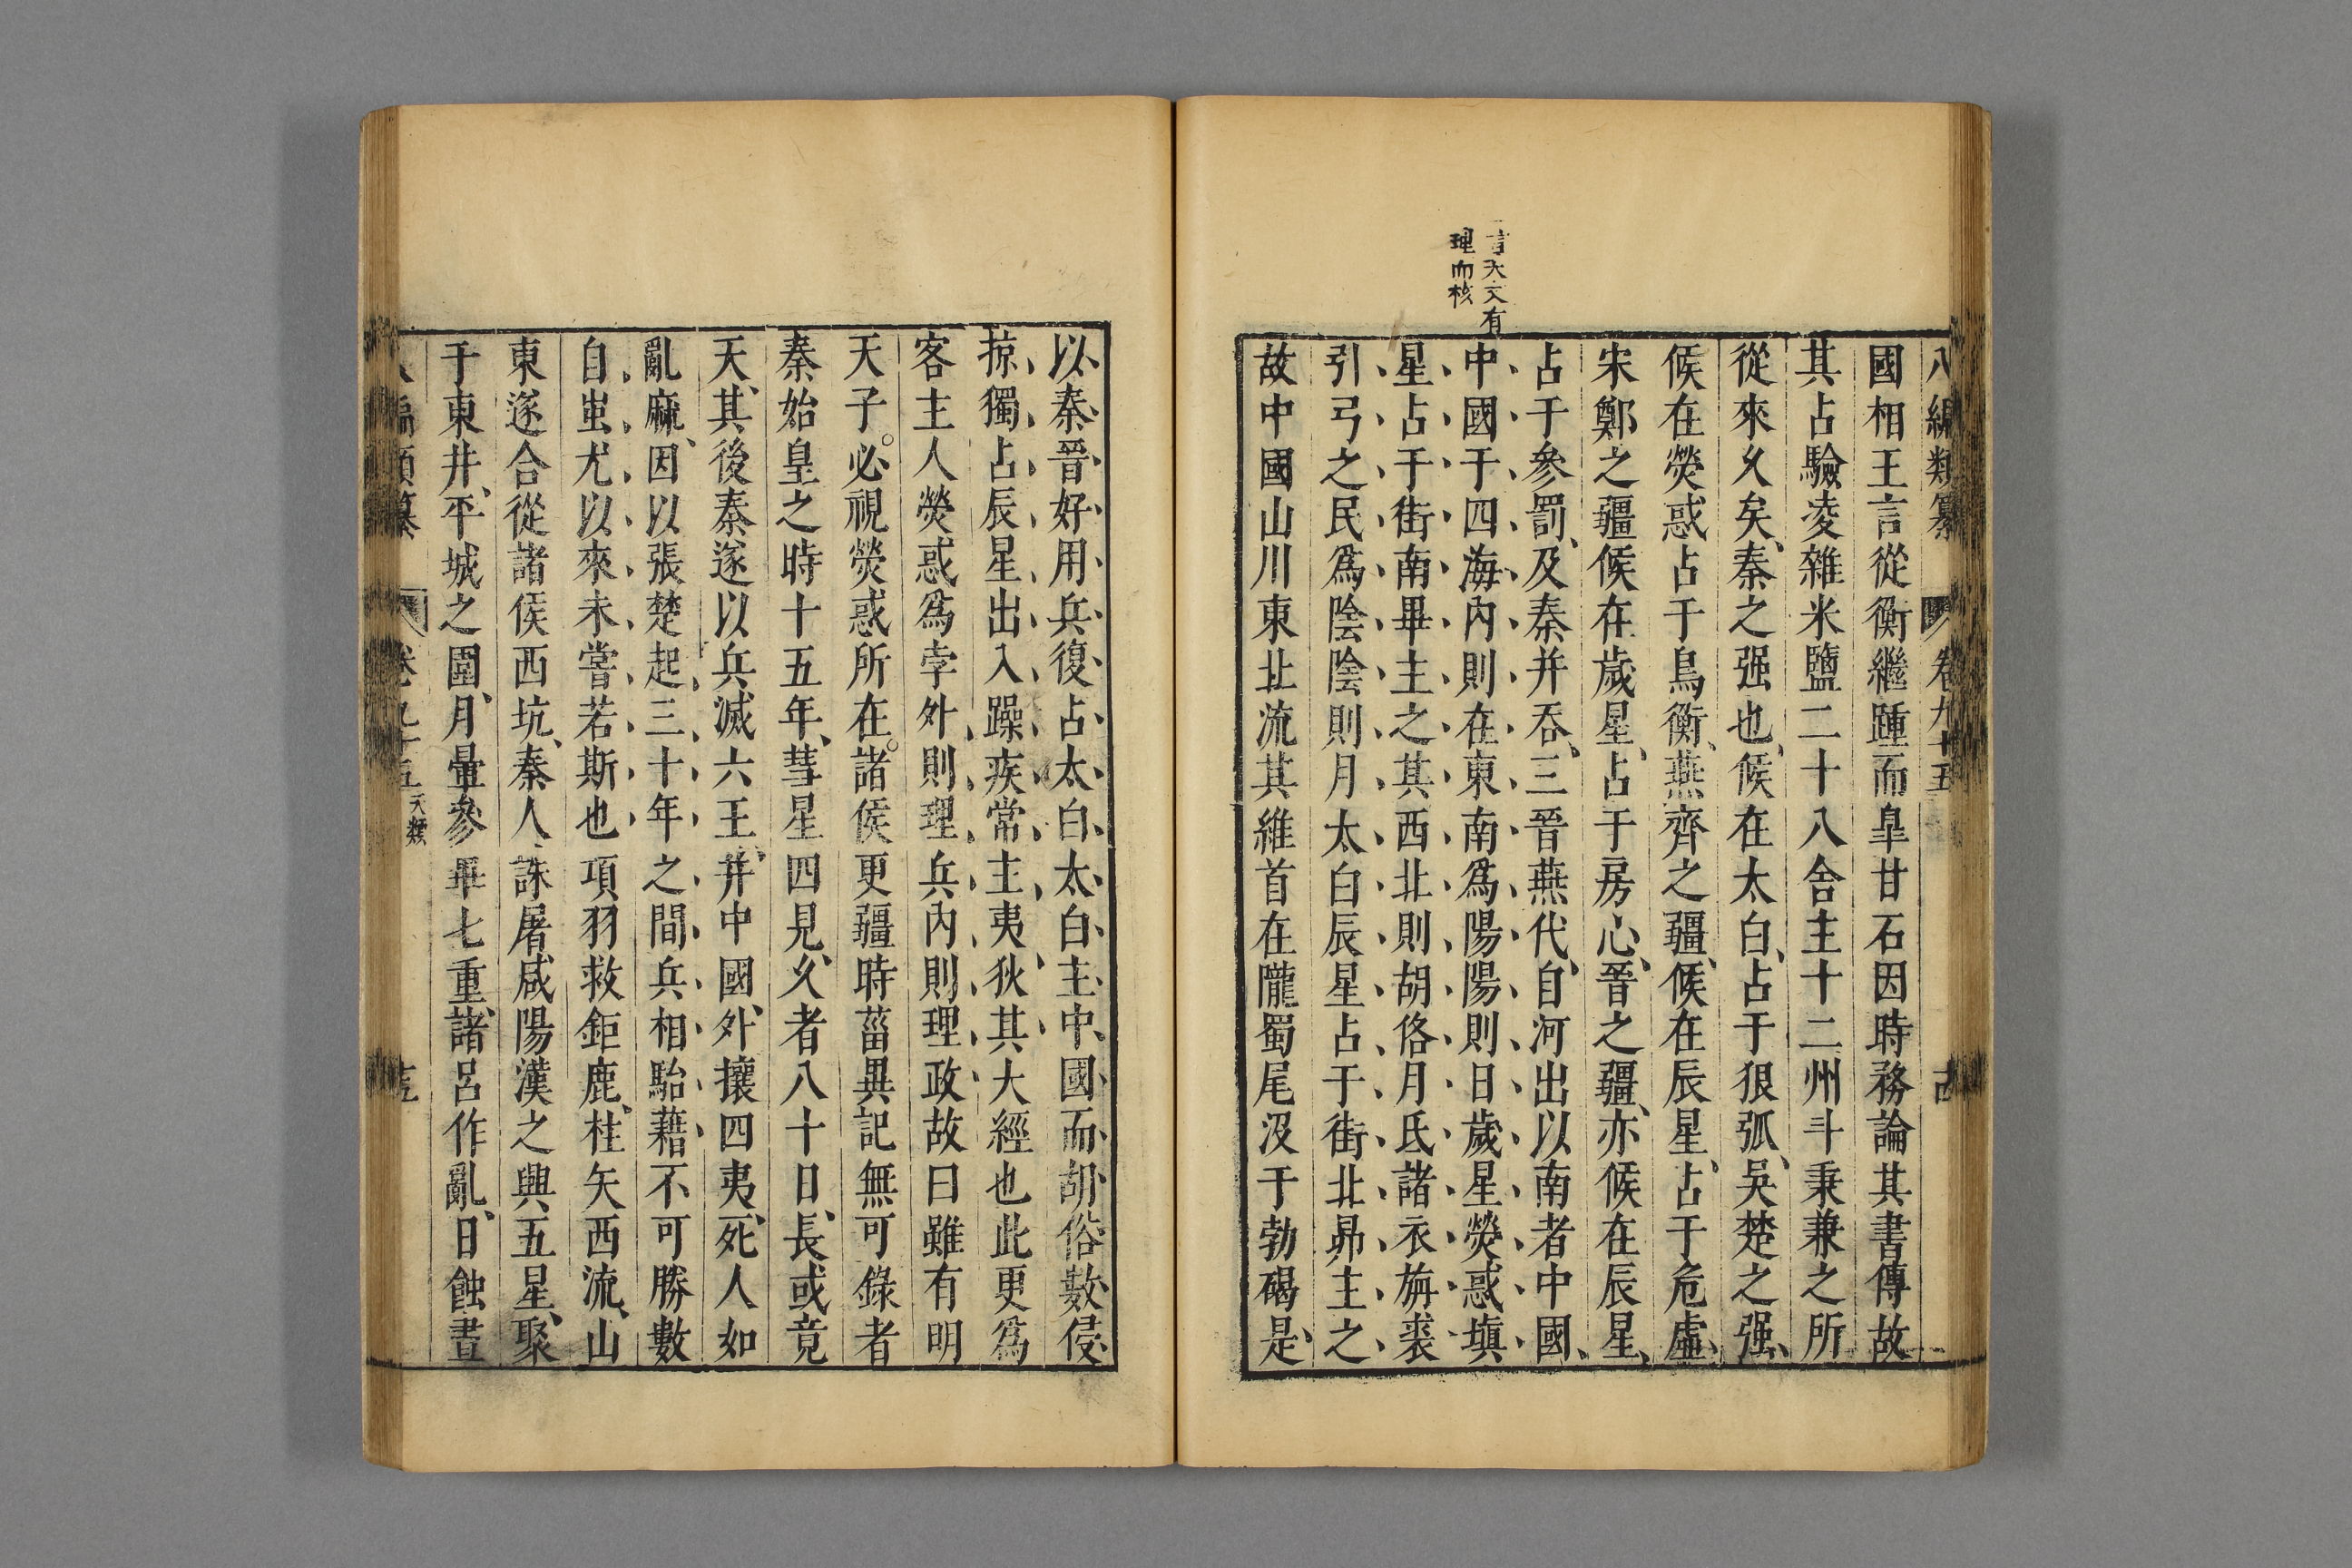 八編類纂 卷九十五 古
國相王言從衡繼踵而臯甘石因時務論其書傳故
其占驗凌雜米鹽二十八舍主十二州斗秉兼之所
從來久矣秦之强也候在太白占于狼弧吳楚之强
候在熒惑占于鳥衡燕齊之疆候在辰星占于危虛
宋鄭之疆候在歲星占于房心晉之疆亦候在辰星
占于參罰及秦并吞三晉燕代自河出以南者中國
言天文有
理而核
中國于四海內則在東南爲陽陽則日歲星熒惑塡
星占于街南畢主之其西北則胡佫月氏諸衣旃裘
引弓之民爲陰陰則月太白辰星占于街北昴主之
故中國山川東北流其維首在隴蜀尾沒于勃碣是
以秦晉好用兵復占太白太白主中國而胡俗數侵
掠獨占辰星出入躁疾常主夷狄其大經也此更爲
客主人熒惑爲孛外則理兵內則理政故曰雖有明
天子必視熒惑所在諸侯更疆時菑異記無可錄者
秦始皇之時十五年彗星四見久者八十日長或竟
天其後秦遂以兵滅六王并中國外攘四夷死人如
亂麻因以張楚起三十年之間兵相駘藉不可勝數
自蚩尤以來未嘗若斯也項羽救鉅鹿枉矢西流山
東遂合從諸侯西坑秦人誅屠咸陽漢之興五星聚
于東井平城之圍月暈參畢七重諸呂作亂日蝕晝
八編類纂 卷九十五 天類